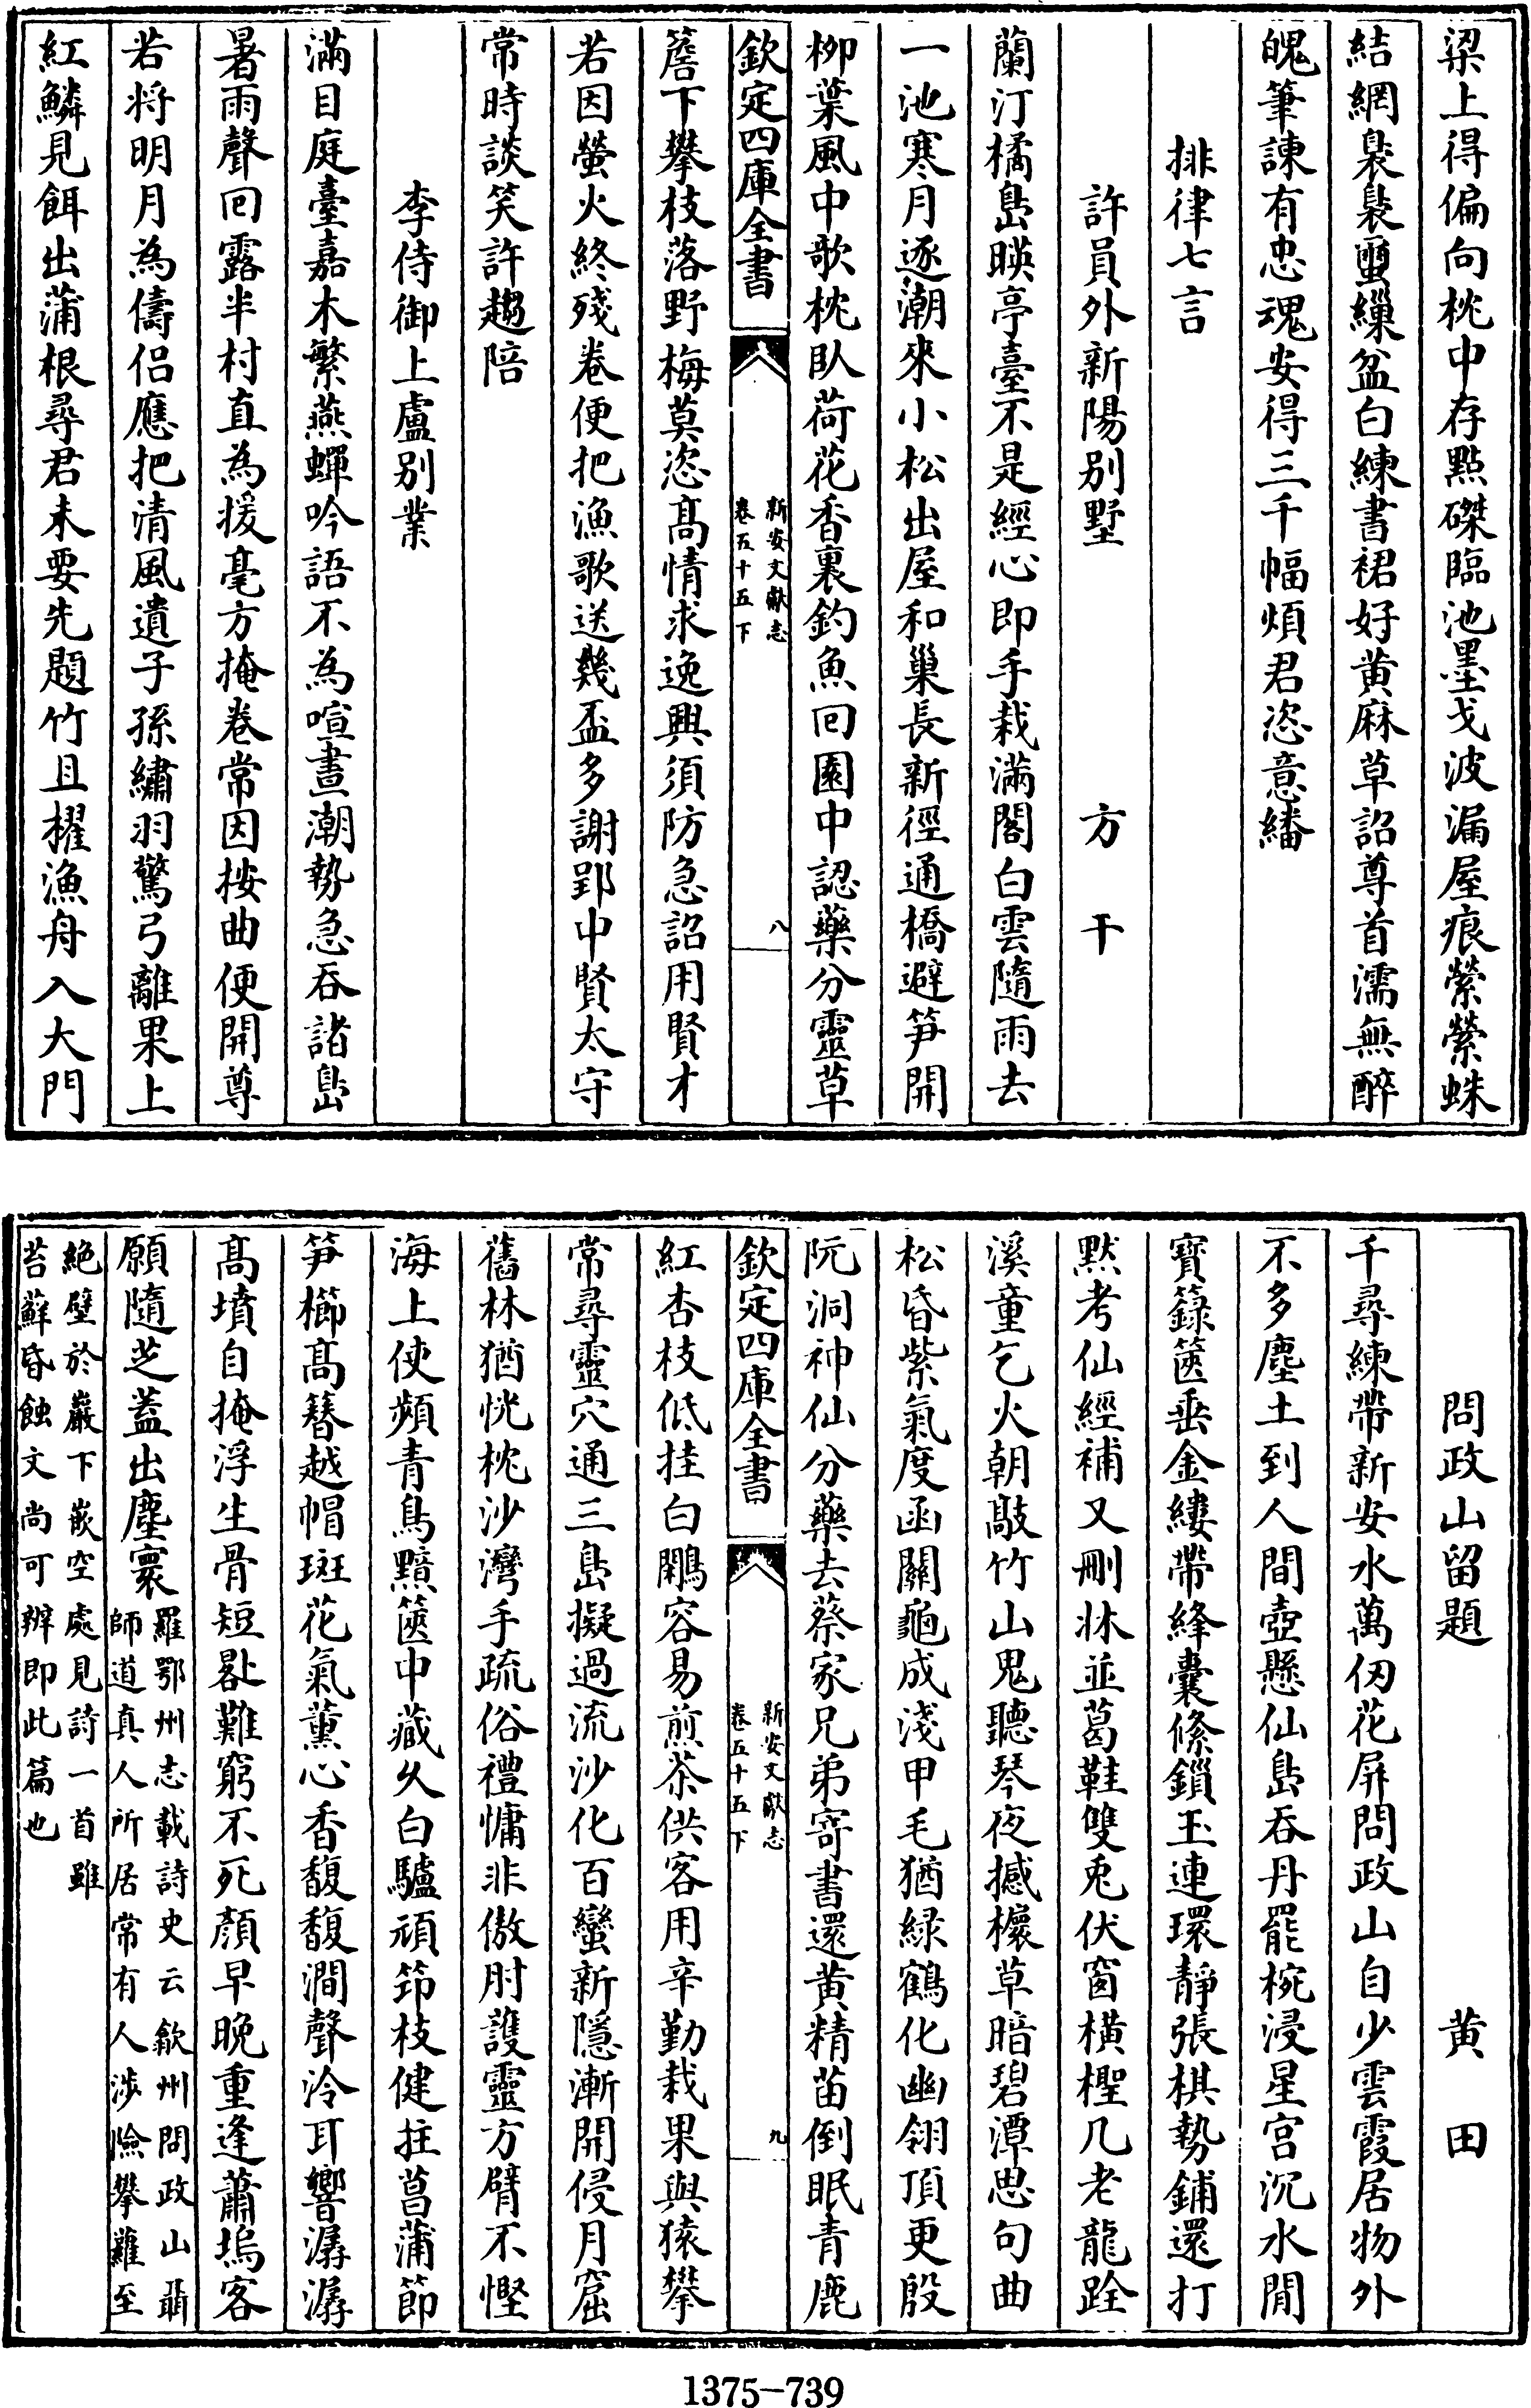 梁上得偏向枕中存點磔臨池墨戈波漏屋痕縈縈蛛
結網裊裊蠒繅盆白練書裙好黄麻草詔尊首濡無醉
魄筆諫有忠魂安得三千幅煩君恣意繙
排律七言
許員外新陽别墅 方干
蘭汀橘島暎亭臺不是經心即手栽滿閣白雲隨雨去
一池寒月逐潮來小松出屋和巢長新徑通橋避笋開
栁葉風中歌枕卧荷花香裏釣魚回園中認藥分靈草
欽定四庫全書 新安文獻志 卷五十五下 八
簷下攀枝落野梅莫恣髙情求逸興須防急詔用賢才
若因螢火終殘卷便把漁歌送幾盃多謝郢中賢太守
常時談笑許趨陪
李侍御上盧别業
滿目庭臺嘉木繁燕蟬吟語不為喧晝潮勢急吞諸島
暑雨聲回露半村直為援毫方掩卷常因按曲便開尊
若将明月為儔侣應把清風遺子孫繡羽驚弓離果上
紅鱗見餌出蒲根尋君未要先題竹且櫂漁舟入大門
問政山留題 黄田
千尋練帶新安水萬仭花屏問政山自少雲霞居物外
不多塵土到人間壺懸仙島吞丹罷椀浸星宫沉水閒
寳籙篋垂金縷帶絳囊絛鎖玉連環靜張棋勢鋪還打
黙考仙經補又刪牀並葛鞋雙兎伏窗横檉几老龍跧
溪童乞火朝敲竹山鬼聽琴夜撼櫰草暗碧潭思句曲
松昏紫氣度函關龜成淺甲毛猶緑鶴化幽翎頂更殷
阮洞神仙分藥去蔡家兄弟寄書還黄精苗倒眠青鹿
欽定四庫全書 新安文獻志 卷五十五下 九
紅杏枝低挂白鷳容易煎茶供客用辛勤栽果與猿攀
常尋靈穴通三島擬過流沙化百蠻新隱漸開侵月窟
舊林猶恍枕沙灣手疏俗禮慵非傲肘護靈方臂不慳
海上使頻青鳥黠篋中藏久白驢頑筇枝健拄菖蒲節
笋櫛髙簪越㡌斑花氣薫心香馥馥澗聲泠耳響潺潺
髙墳自掩浮生骨短晷難窮不死顔早晚重逢蕭塢客
願隨芝蓋出塵寰 羅鄂州志載詩史云歙州問政山聶
師道真人所居常有人涉險攀蘿至
絶壁於巖下嵌空處見詩一首雖
苔蘚昏蝕文尚可辨即此篇也
1375-739